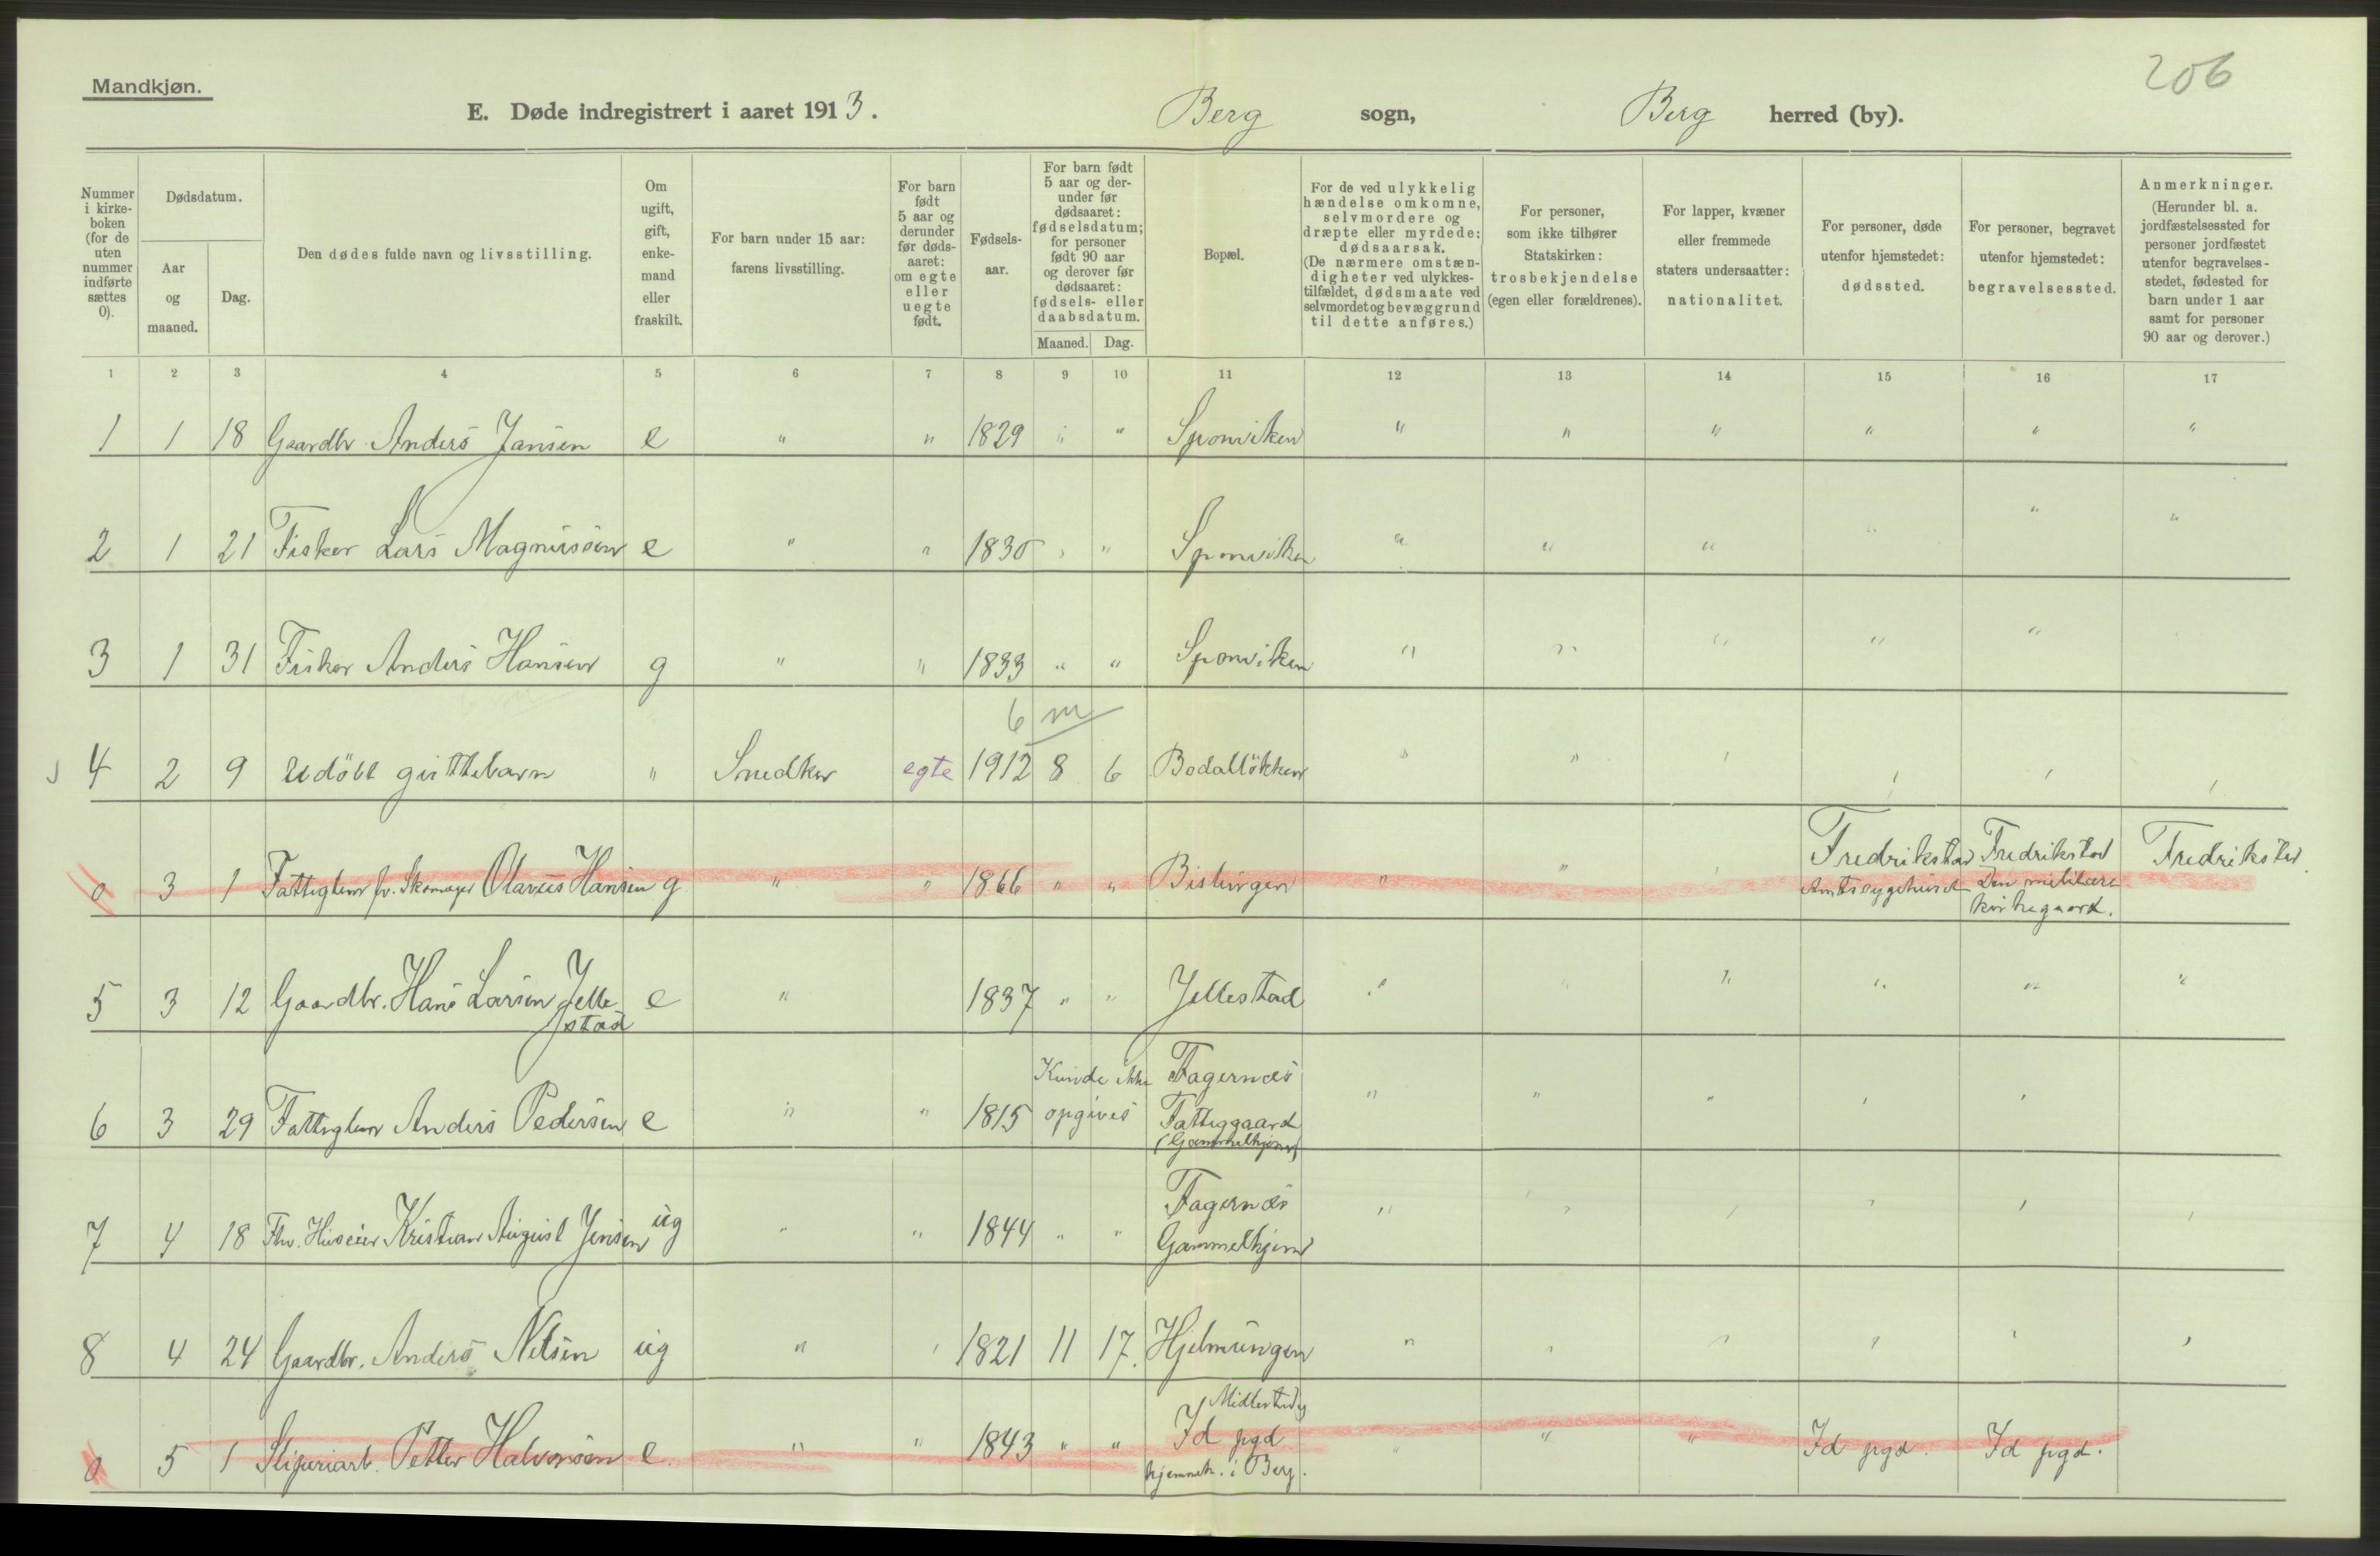 206
Mandkjøn.
E. Døde indregistrert i aaret 1913. Berg sogn, Berg herred (by).
Nummer i kirke-boken (for de uten nummer indførte sættes 0).
Dødsdatum.
Aar og maaned.
Dag.
Den dødes fulde navn og livsstilling.
Om ugift, gift, enke-mand eller fraskilt.
For barn under 15 aar: farens livsstilling.
For barn født 5 aar og derunder før døds-aaret: om egte eller uegte født.
Fødsels-aar.
For barn født 5 aar og der-under før dødsaaret: fødselsdatum; for personer født 90 aar og derover før dødsaaret: fødsels- eller daabsdatum.
Maaned. Dag.
Bopæl.
For de ved ulykkelig hændelse omkomne, selvmordere og dræpte eller myrdede: dødsaarsak. (De nærmere omstæn-digheter ved ulykkes-tilfældet, dødsmaate ved selvmordet og bevæggrund til dette anføres.)
For personer, som ikke tilhører Statskirken: trosbekjendelse (egen eller forældrenes).
For lapper, kvæner eller fremmede staters undersaatter: nationalitet.
For personer, døde utenfor hjemstedet: dødssted.
For personer, begravet utenfor hjemstedet: begravelsessted.
Anmerkninger. (Herunder bl. a. jordfæstelsessted for personer jordfæstet utenfor begravelses-stedet, fødested for barn under 1 aar samt for personer 90 aar og derover.)
1 2 3 4 5 6 7 8 9 10 11 12 13 14 15 16 17
1 1 18 Gaardbr. Anders Jansen e " " 1829 " " Sponviken " " " " " "
2 1 21 Fisker Lars Magnussen e " " 1830 " " Sponviken " " " " " "
3 1 31 Fisker Anders Hansen g " " 1833 " " Sponviken " " " " "
6 m
4 2 9 Udöbt guttebarn " Snedker egte 1912 8 6 Bodallökken " " " " " "
0 3 1 Fattiglem fv. Skomager Olavus Hansen g " " 1866 " " Bislingen " " " Fredrikstad Amtssygehuset Fredrikstad Den militære kirkegaard. Fredrikstad
5 3 12 Gaardbr. Hans Larsen Jellestad e " 1837 " " Jellestad " " " " " "
6 3 29 Fattiglem Anders Pedersen e " " 1815 Kunde ikke opgives Fagernæs Fattiggaard (Gammelhjem) " " " " "
7 4 18 Fhv. Huseier Kristian August Jensen ug " " 1844 " " Fagernæs Gammelhjem " " " " " "
8 4 24 Gaardbr. Anders Nilsen ug " " 1821 11 17. Hjelmungen " " " " " "
0 5 1 Sliperiarb. Petter Halvorsen e " " 1843 " " Midlertidig Id pgd hjemmeh. i Berg. " " " Id pgd. Id pgd.